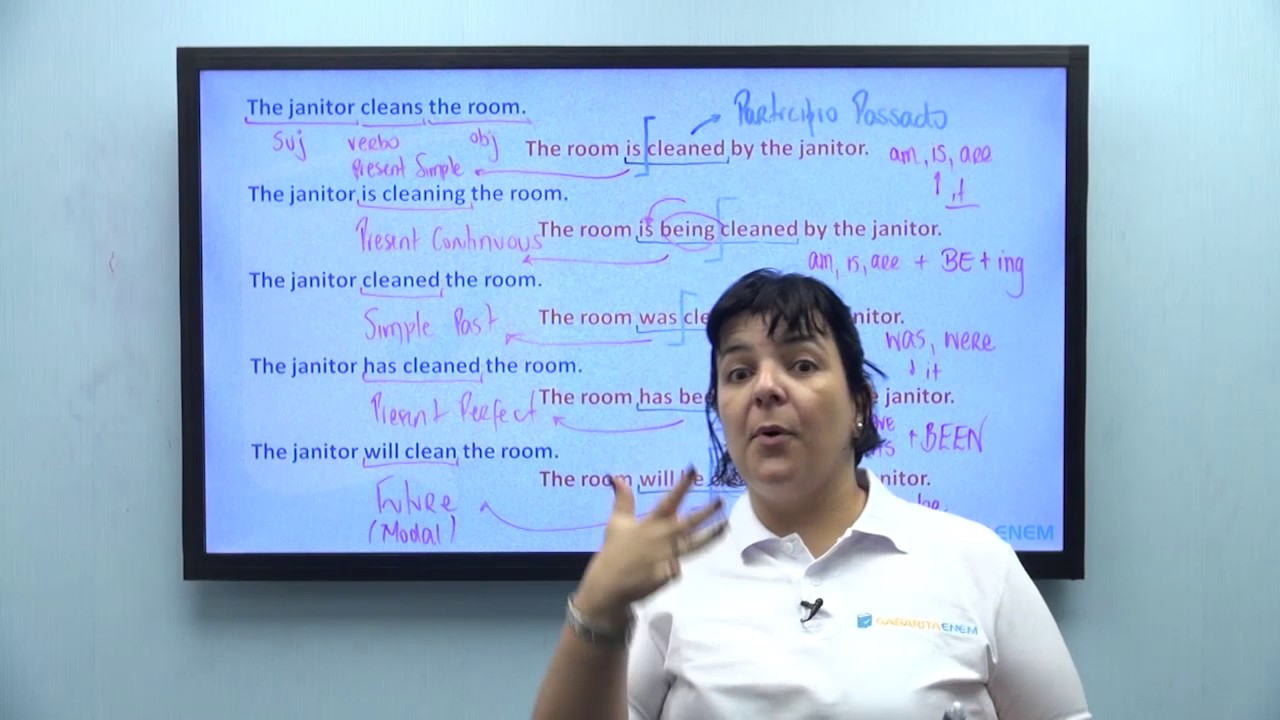 The janitor cleans the room.
Suj verbo obj
Participio Passado
Present Simple
The room is cleaned by the janitor.
am, is, are
it
The janitor is cleaning the room.
Present Continuous
The room is being cleaned by the janitor.
am, is, are + BE + ing
The janitor cleaned the room.
Simple Past
The room was
was, were
it
The janitor has cleaned the room.
Present Perfect
The room has
janitor.
+ BEEN
The janitor will clean the room.
Future
(Modal)
The room will be
ENEM
GABARITAENEM